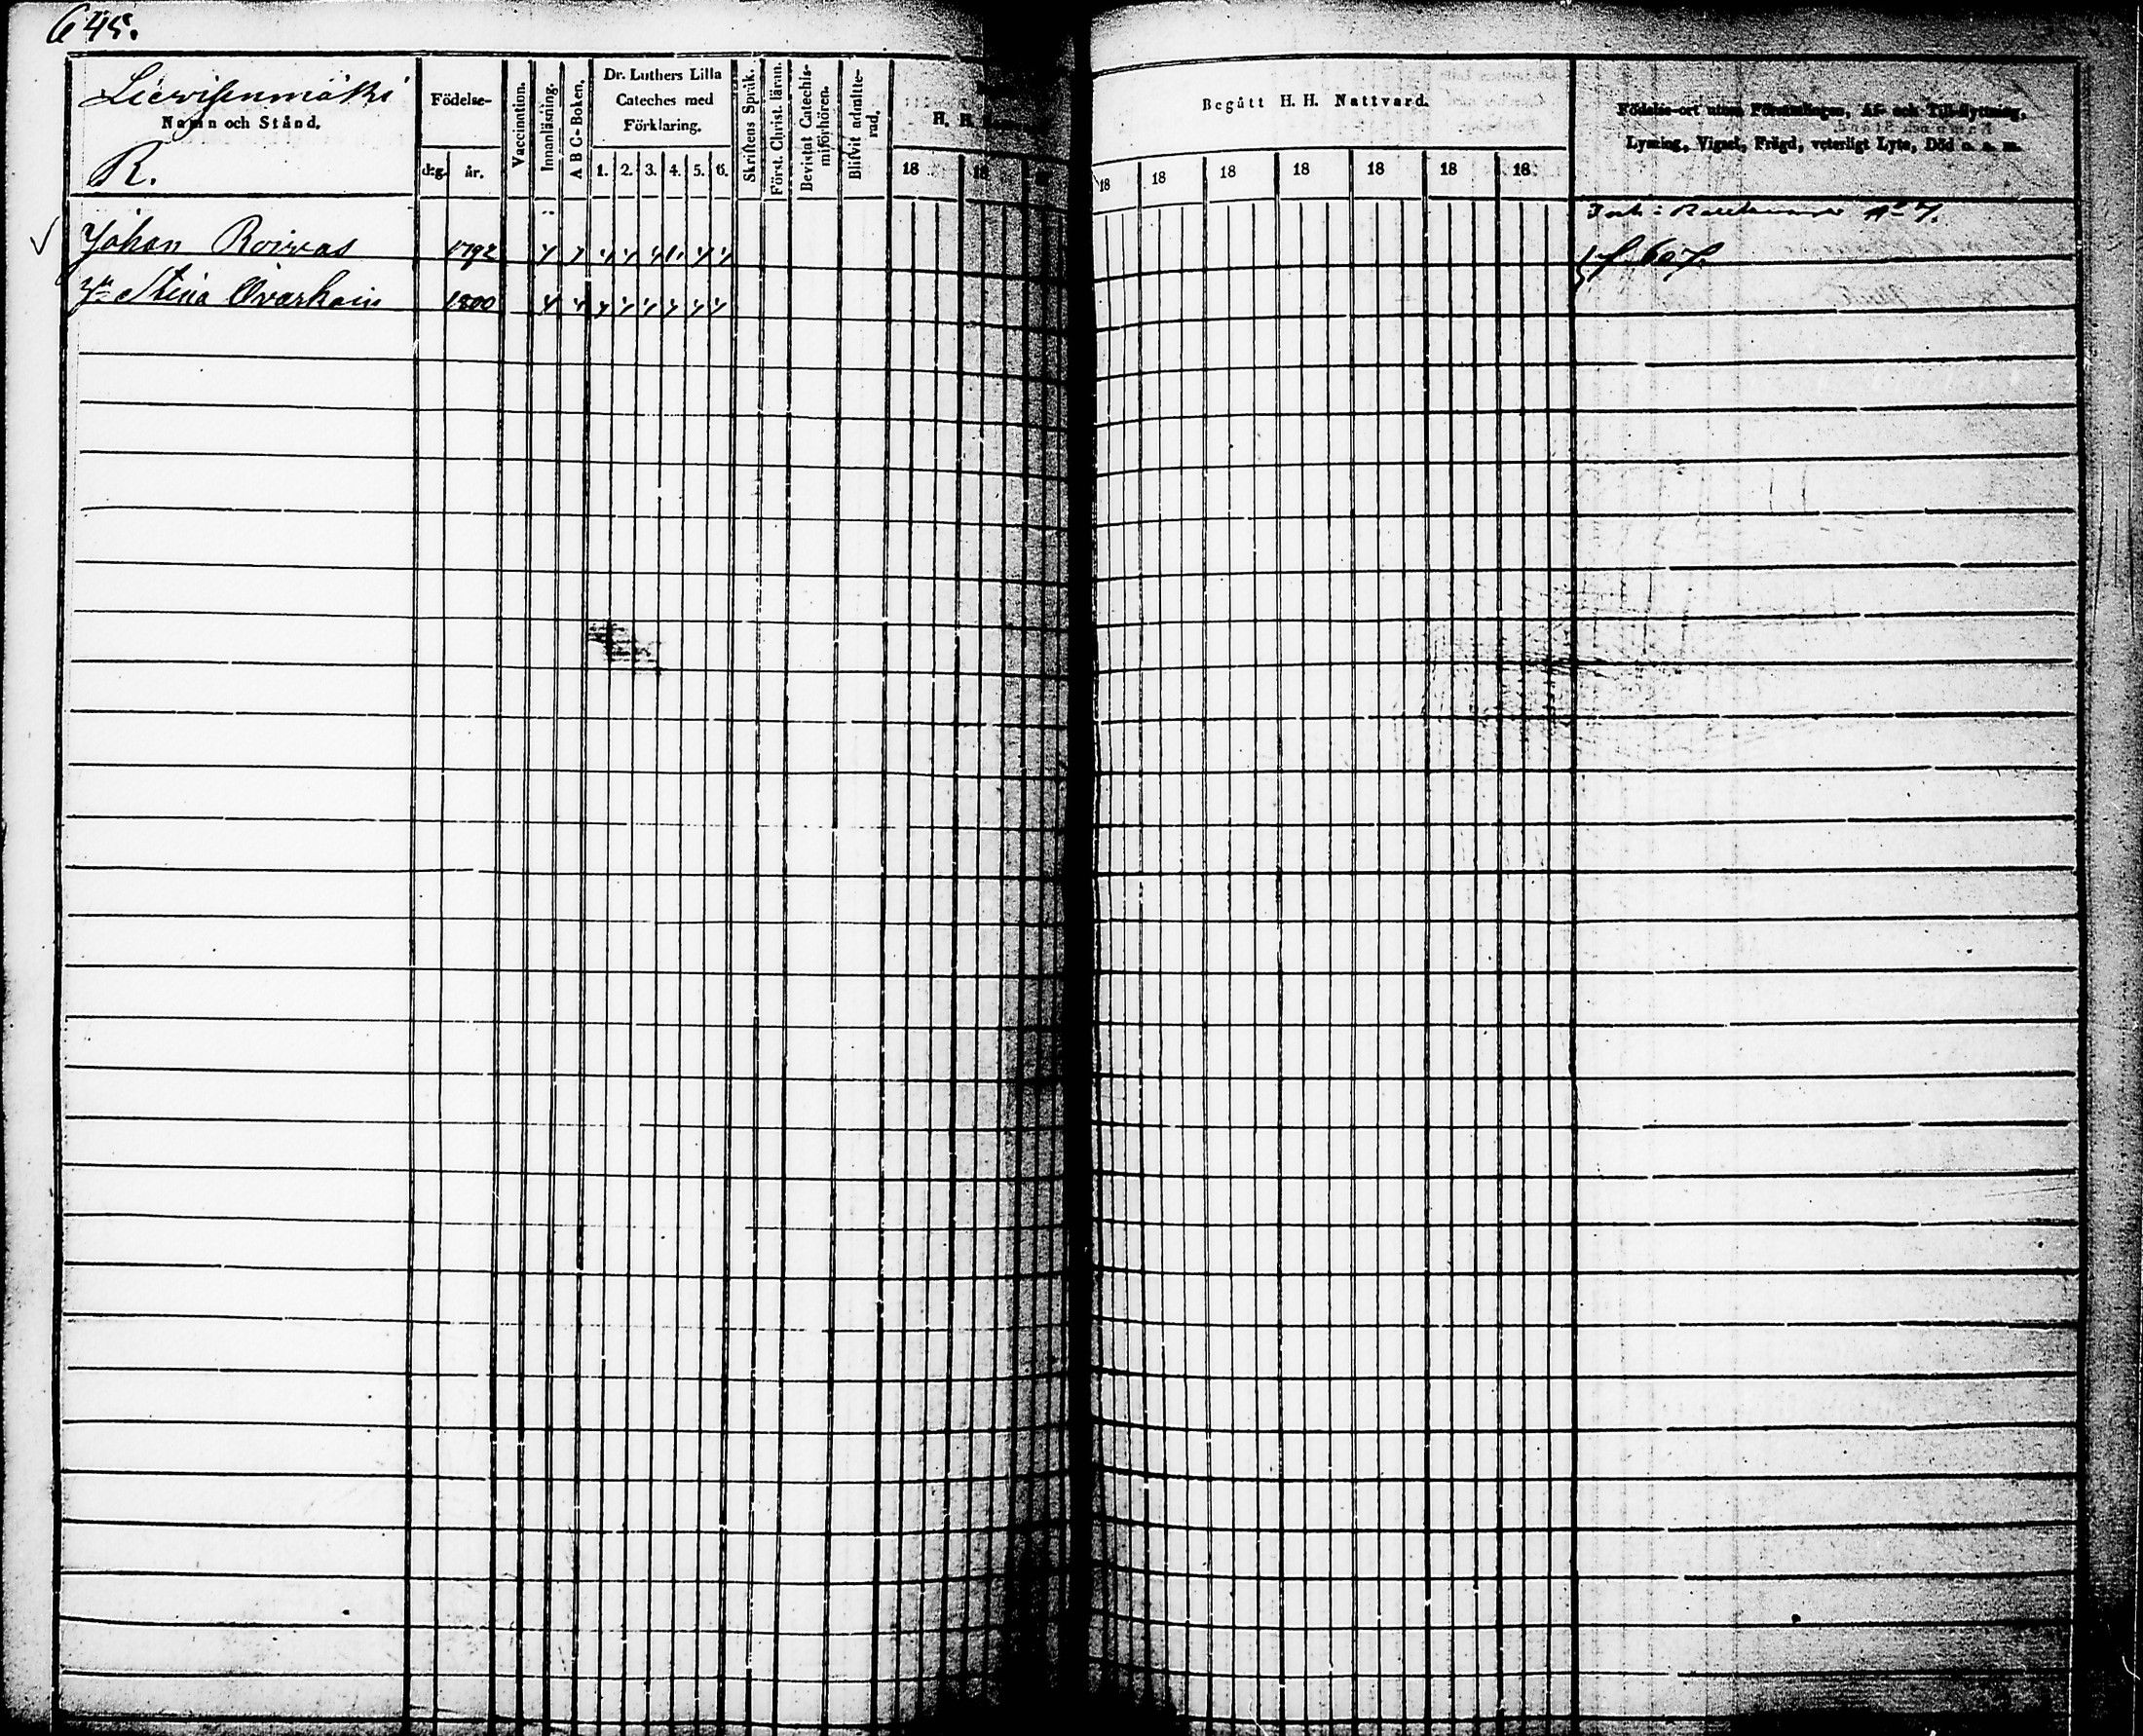 645.
Leivisenmäki
Namn och Stånd.
R.
Födelse-
dag. år.
Vaccination.
Innanläsning.
A B C-Boken.
Dr. Luthers Lilla
Cateches med
Förklaring.
1. 2. 3. 4. 5. 6.
Skriftens Språk.
Först. Christ. läran.
Bevistat Catechis-
miförhören.
Blifvit admitte-
rad.
H. H.
18 18
Begått H. H. Nattvard.
18 18 18 18 18 18 18
Födelse-ort utom Församlingen, Af- och Till-flyttning,
Lysning, Vigsel, Frägd, veterligt Lyte, Död o. s. m.
No 7.
Johan Roivas 1792
f. 607.
Stina Overhain 1800